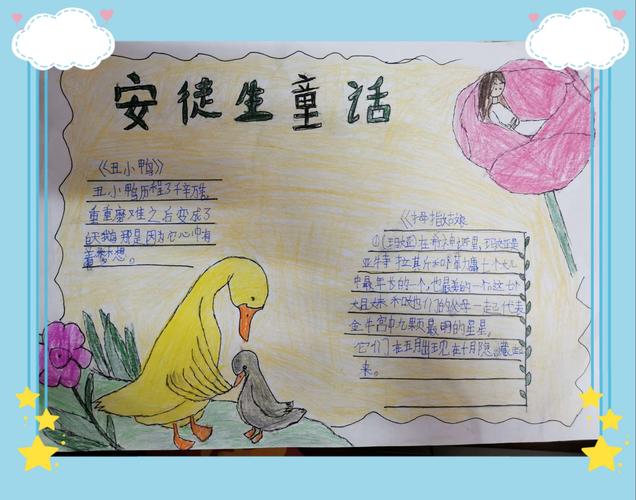 安徒生童话
《丑小鸭》
丑小鸭历程了千辛万
重重磨难之后变成了
白天鹅那是因为它心中有
着梦想。
《拇指姑娘
①(玛亚)在希神话里,玛亚是
亚特拉其斤和 七个女儿
中最年长的一个,也最美的一个。这七个
姐妹和他们的父母一起代表
金牛宫中九颗最明的星星,
它们在五月出现在十月隐藏起
来。